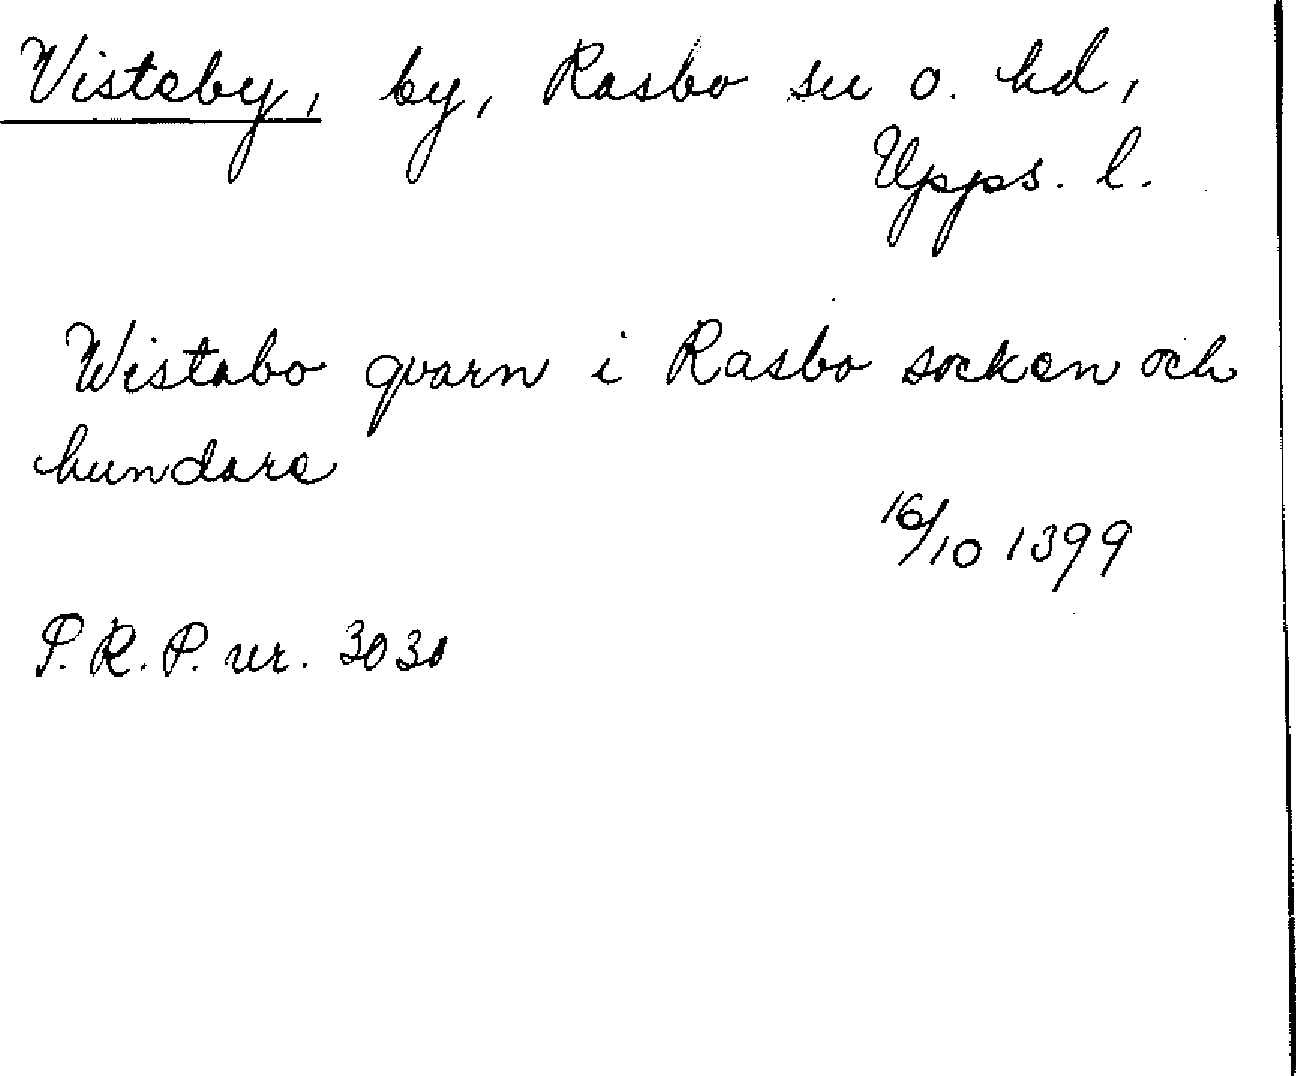 Visteby, by, Rasbo sn o. hd,
Upps. l.
Wistabo qvarn i Rasbo socken och
hundare
16/10 1399
P.R.P. nr. 3030